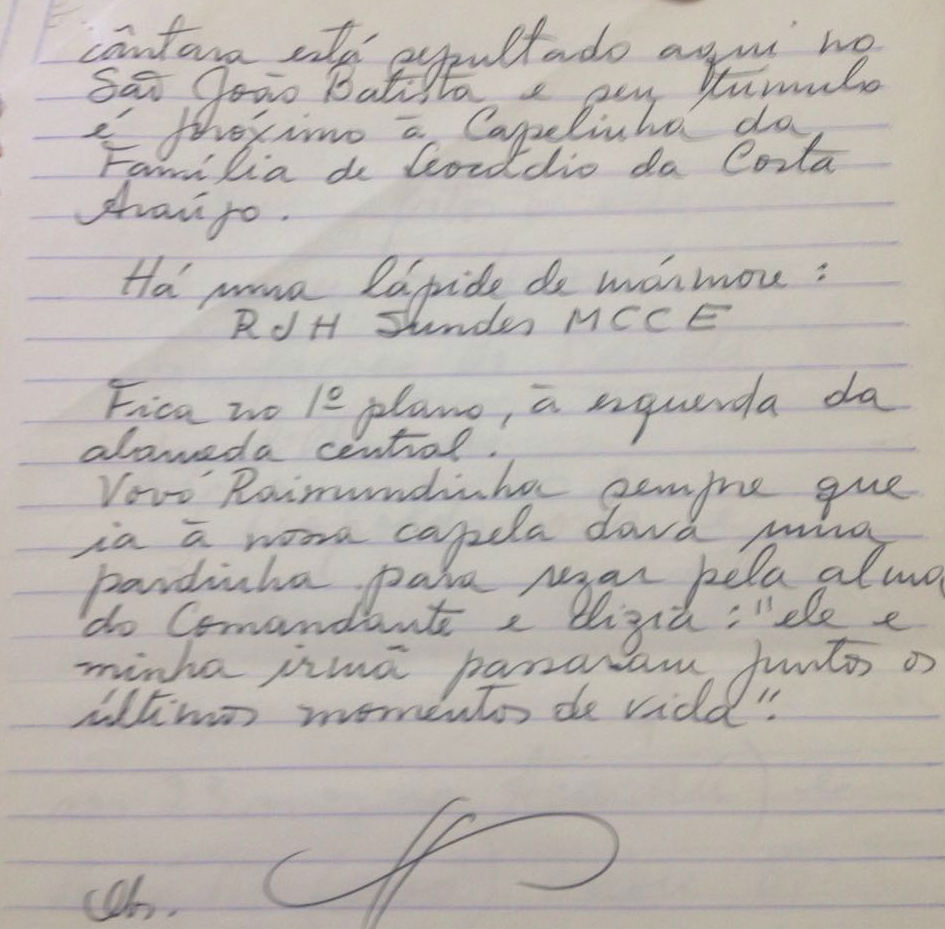 cântara está sepultado aqui no
São João Batista e seu túmulo
é próximo à Capelinha da
Família de Leocádio da Costa
Araújo.
Há uma lápide de mármore:
RJH Sundes MCCE
Fica no 1º plano, à esquerda da
alameda central.
Vovó Raimundinha sempre que
ia à nossa capela dava uma
paradinha para rezar pela alma
do Comandante e dizia: "ele e
minha irmã passaram juntos os
últimos momentos de vida".